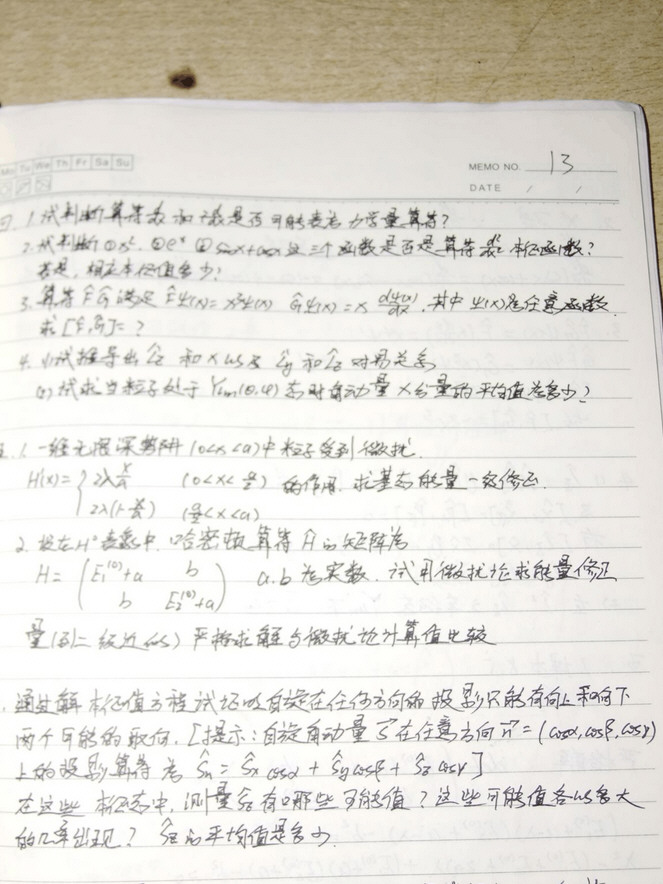 Mo Tu We Th Fr Sa Su
MEMO NO. 13
DATE / /
1.试判断算符 和 是否可能表为力学量算符?
2.试判断①x². ②eˣ ③sinx+cosx 这三个函数是否是算符 本征函数?
若是,相应本征值多少?
3.算符F̂ Ĝ满足 F̂ψ(x)=x²ψ(x) Ĝψ(x)=x dψ(x)/dx,其中ψ(x)是任意函数
求[F̂,Ĝ]=?
4.(1)试推导出L̂z 和 x 以及 L̂y 和 L̂z 对易关系
(2)试求当粒子处于Yₗₘ(θ,φ)态时角动量X分量的平均值为多少?
1.一维无限深势阱(0<x<a)中粒子受到微扰
H(x)={2λ x/a (0<x<a/2) 的作用,求基态能量一级修正.
2λ(1-x/a) (a/2<x<a)
2.设在H⁰表象中,哈密顿算符Ĥ的矩阵为
H=(E₁⁽⁰⁾+a b
b E₂⁽⁰⁾+a) a.b为实数,试用微扰论求能量修正
量(到二级近似)严格求解与微扰论计算值比较
.通过解本征值方程试证明自旋在任何方向的投影只能有向上和向下
两个可能的取向.[提示:自旋角动量S⃗在任意方向n⃗=(cosα,cosβ,cosγ)
上的投影算符为Ŝn=Ŝx cosα+Ŝy cosβ+Ŝz cosγ]
在这些本征态中,测量Ŝz有哪些可能值?这些可能值各以多大
的几率出现?Ŝz的平均值是多少.